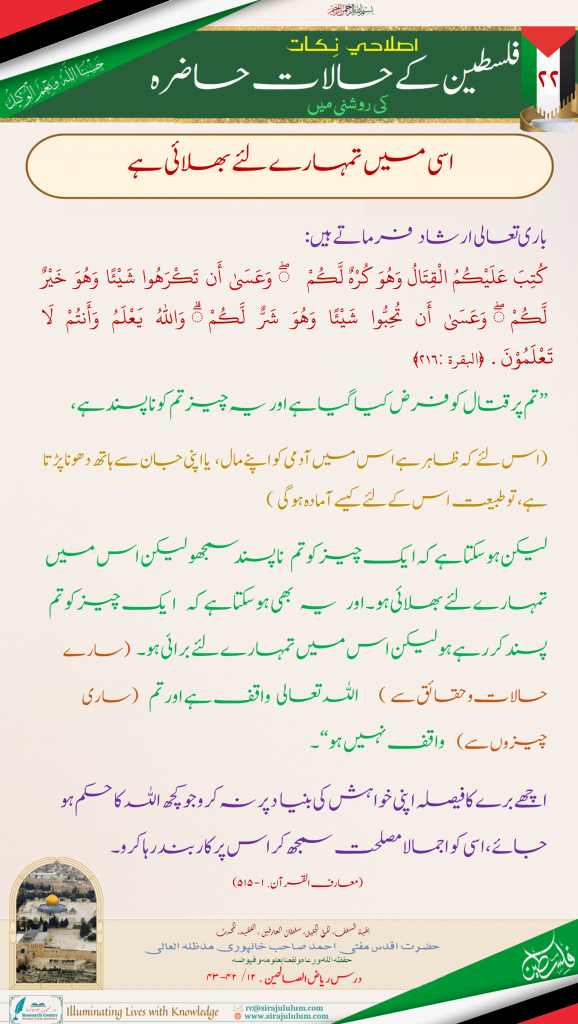 بسم اللہ الرحمن الرحیم
حَسْبُنَا اللّٰهُ وَنِعْمَ الْوَكِيْل
اصلاحی نِکات
فلسطین کے حالات حاضرہ
کی روشنی میں
۲۲
اسی میں تمہارے لئے بھلائی ہے
باری تعالی ارشاد فرماتے ہیں:
كُتِبَ عَلَيْكُمُ الْقِتَالُ وَهُوَ كُرْهٌ لَّكُمْ ۖ وَعَسَىٰ أَن تَكْرَهُوا شَيْئًا وَهُوَ خَيْرٌ
لَّكُمْ ۖ وَعَسَىٰ أَن تُحِبُّوا شَيْئًا وَهُوَ شَرٌّ لَّكُمْ ۗ وَاللهُ يَعْلَمُ وَأَنتُمْ لَا
تَعْلَمُوْنَ . ﴿البقرة :٢١٦﴾
”تم پر قتال کو فرض کیا گیا ہے اور یہ چیز تم کو ناپسند ہے،
(اس لئے کہ ظاہر ہے اس میں آدمی کو اپنے مال، یا اپنی جان سے ہاتھ دھونا پڑتا
ہے، تو طبیعت اس کے لئے کیسے آمادہ ہوگی )
لیکن ہو سکتا ہے کہ ایک چیز کو تم ناپسند سمجھو لیکن اس میں
تمہارے لئے بھلائی ہو۔ اور یہ بھی ہو سکتا ہے کہ ایک چیز کو تم
پسند کر رہے ہو لیکن اس میں تمہارے لئے برائی ہو۔ (سارے
حالات و حقائق سے ) اللہ تعالی واقف ہے اور تم (ساری
چیزوں سے) واقف نہیں ہو“۔
اچھے برے کا فیصلہ اپنی خواہش کی بنیاد پر نہ کرو جو کچھ اللہ کا حکم ہو
جائے، اسی کو اجمالا مصلحت سمجھ کر اس پر کار بند رہا کرو۔
(معارف القرآن. ۱-۵۱۵)
حضرت اقدس مفتی احمد صاحب خانپوری مدظلہ العالی
حفظہ اللہ ورعاہ ونفعنا بعلومہ وفیوضہ
درس ریاض الصالحین . ۱۲/ ۴۲-۴۳
فلسطین
Research Centre
Illuminating Lives with Knowledge
rc@sirajululum.com
www.sirajululum.com